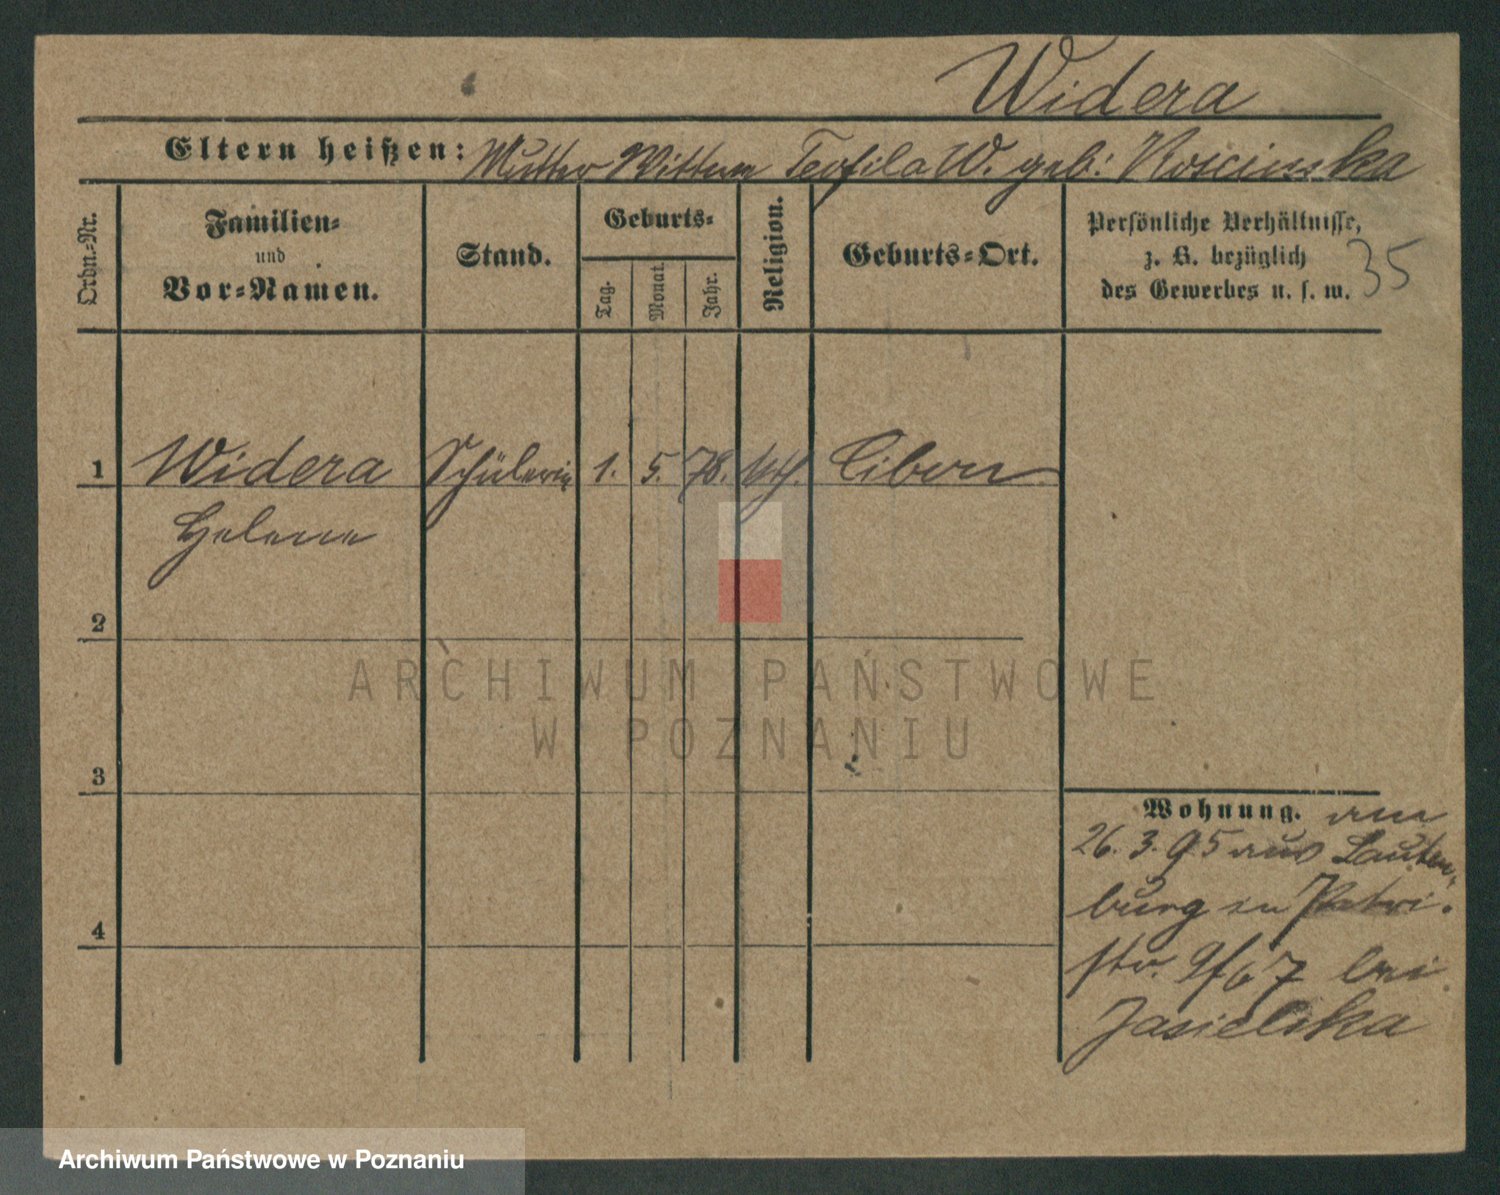 Widera
Eltern heißen: Mutter Wittwe Teofila W. geb:
Ordn.-Nr.
Familien-
und
Vor-Namen.
Stand.
Geburts-
Tag.
Monat.
Jahr.
Religion.
Geburts-Ort.
Persönliche Verhältnisse,
z. B. bezüglich
des Gewerbes u. s. w.
35
1 Widera Schülerin 1. 5. 78. kth.
Helene
2
3
4
Wohnung.
26. 3. 95 aus Lauten-
burg zu Patri.
str. bei
Jasielska
ARCHIWUM PAŃSTWOWE
W POZNANIU
Archiwum Państwowe w Poznaniu